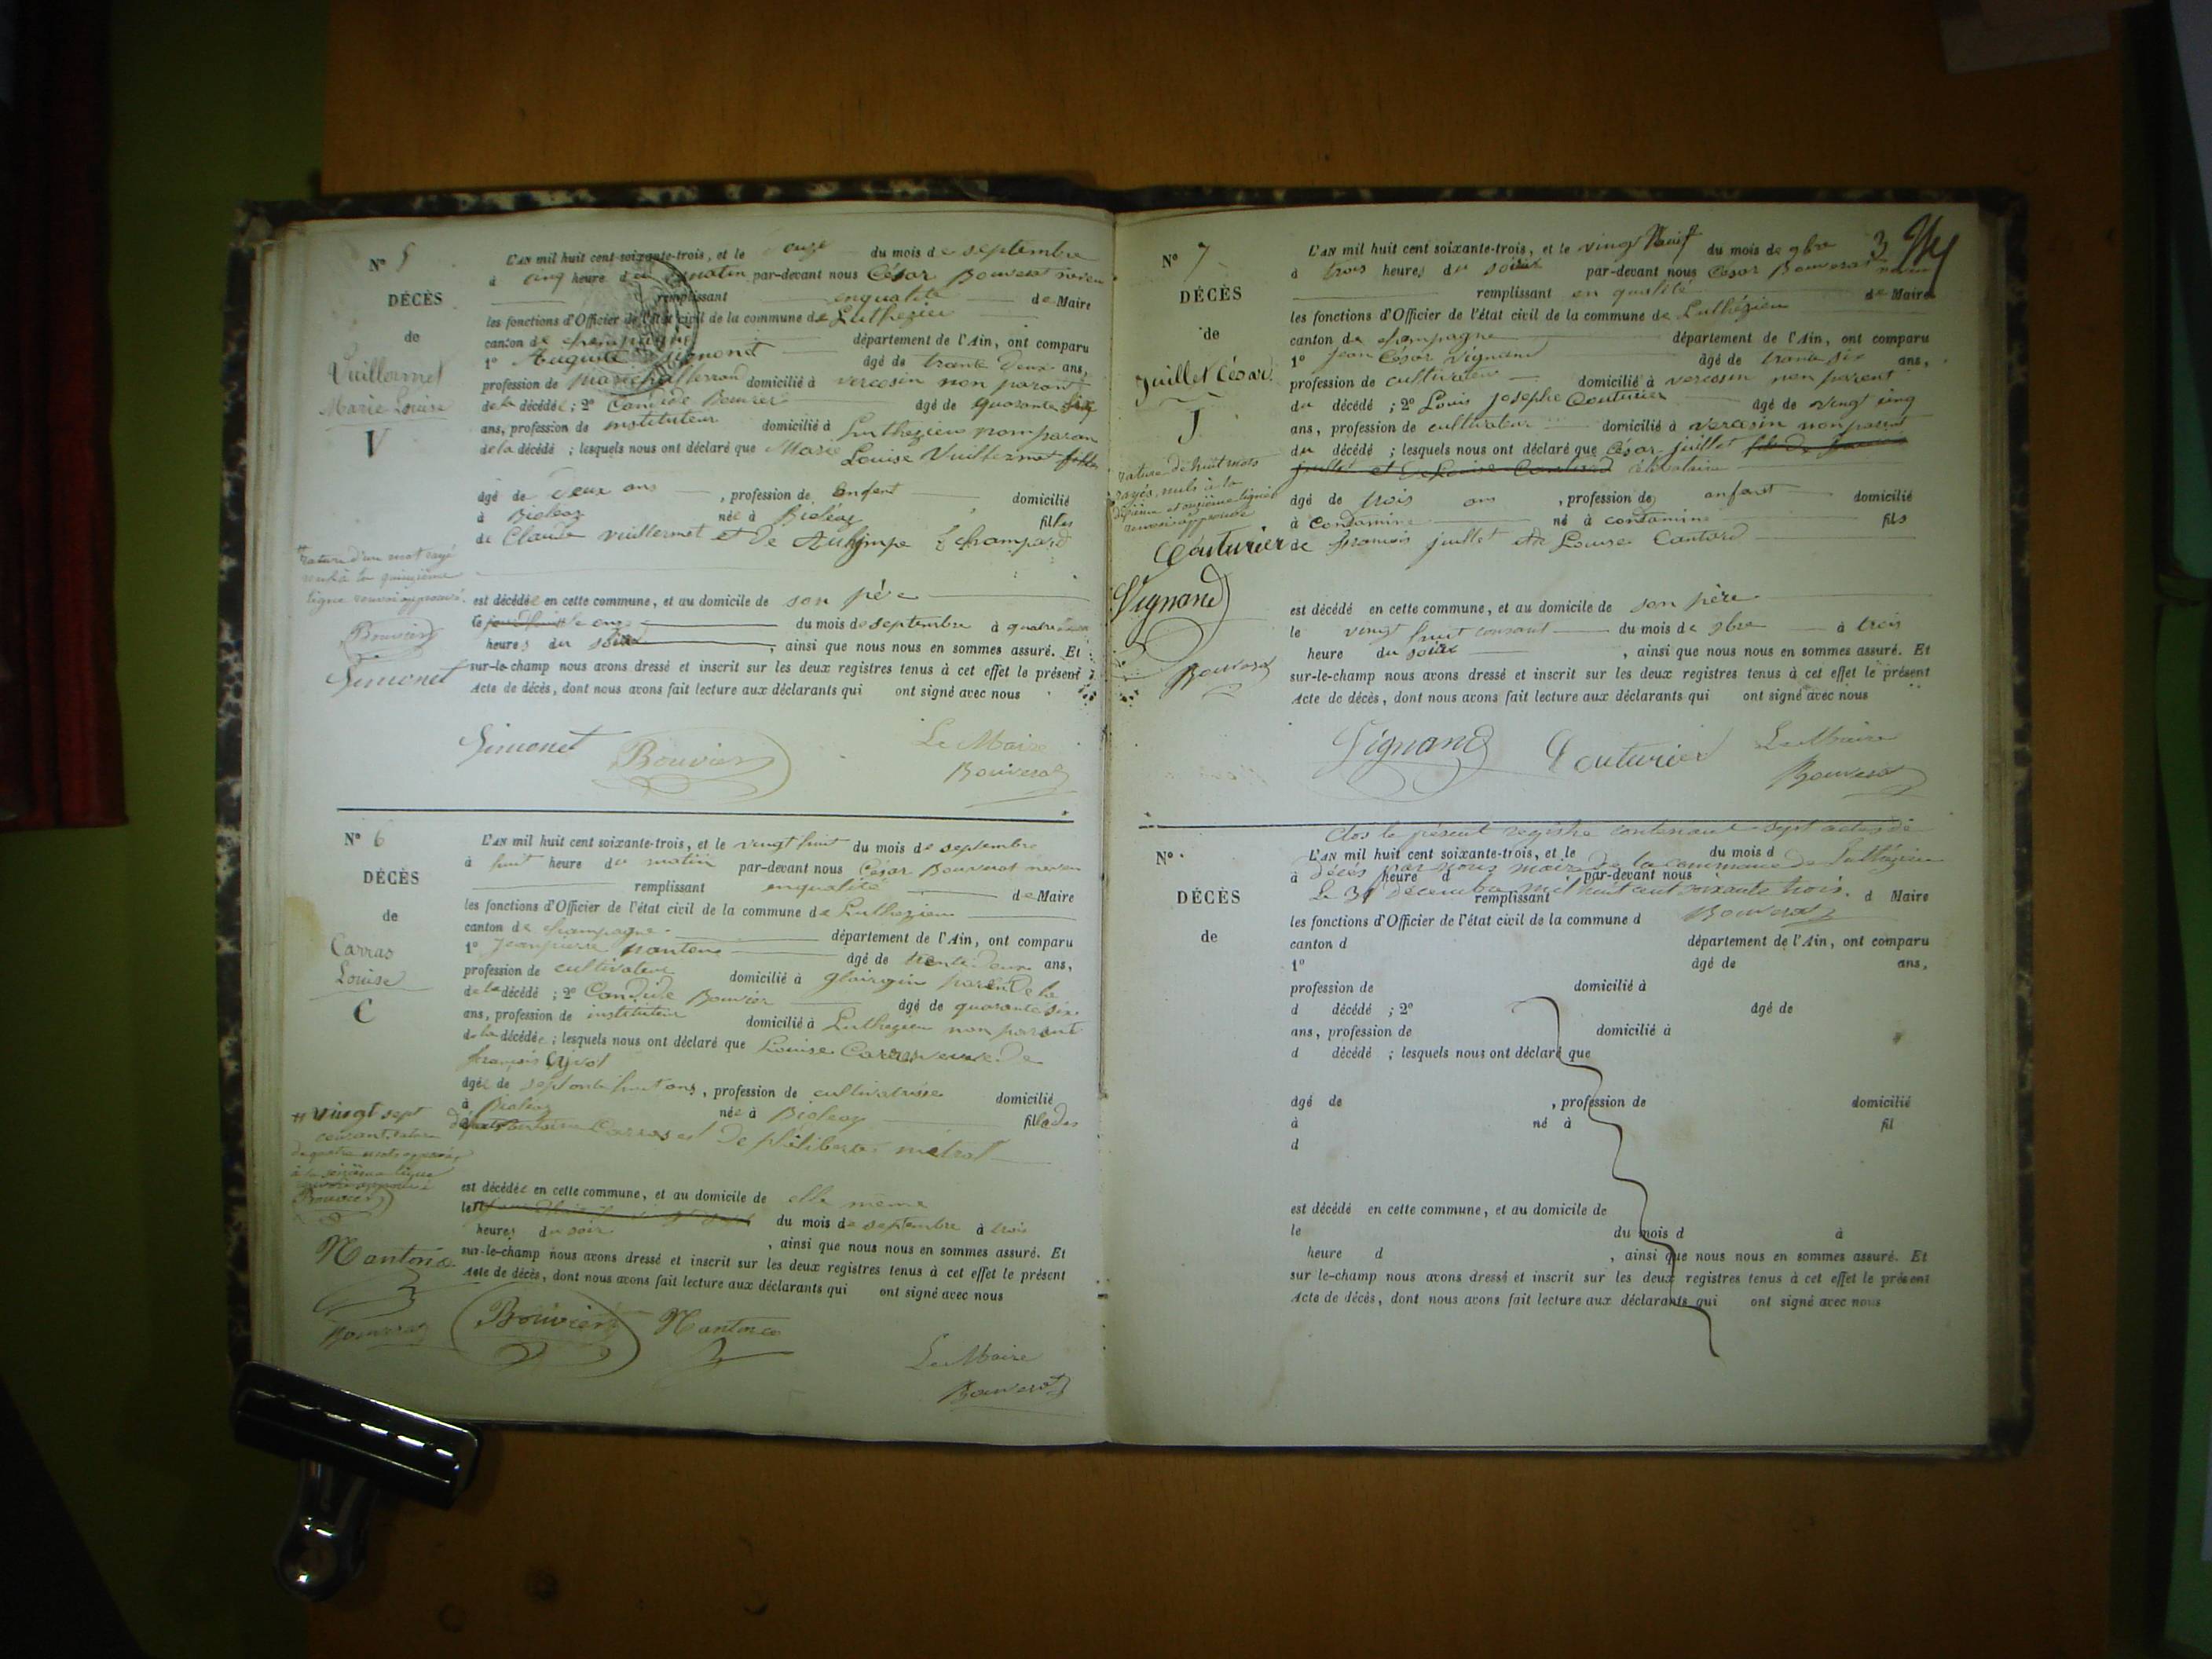 N° 5
DÉCÈS
de
Vuillermet
Marie Louise
V
L'AN mil huit cent soixante-trois, et le onze du mois de septembre
à cinq heure du matin par-devant nous César Bouverat neveu
remplissant enqualité de Maire
les fonctions d'Officier de l'état civil de la commune de Luthezieu
canton de champagne département de l'Ain, ont comparu
1° Auguste Simonet âgé de trante deux ans,
profession de domicilié à vercosin non parant
de la décédée ; 2° Candide Bouvier âgé de quarante six
ans, profession de instituteur domicilié à Luthezieu non paran
de la décédé ; lesquels nous ont déclaré que Marie
Louise Vuillermet
âgé de deux ans , profession de Enfent domicilié
à Bioleaz née à Bioléaz filles
de Claude vuillermet et de
rature d'un mot rayé
nul à la quinzième
ligne renvoi approuvé.
Bouvier
Simonet
est décédée en cette commune, et au domicile de son père
le onze du mois de septembre à quatre
heures du soir , ainsi que nous nous en sommes assuré. Et
sur-le-champ nous avons dressé et inscrit sur les deux registres tenus à cet effet le présent
Acte de décès, dont nous avons fait lecture aux déclarants qui ont signé avec nous
Simonet Bouvier Le Maire
Bouverat
N° 6
DÉCÈS
de
Carras
Louise
C
L'AN mil huit cent soixante-trois, et le vingt huit du mois de septembre
à huit heure du matin par-devant nous César Bouverat neveu
remplissant enqualité de Maire
les fonctions d'Officier de l'état civil de la commune de Luthezieu
canton de champagne département de l'Ain, ont comparu
1° Jeanpierre Nantona âgé de trente deux ans,
profession de cultivateur domicilié à paren de la
de la décédé ; 2° Candide Bouvier âgé de quarante six
ans, profession de instituteur domicilié à Luthezieu non parant
de la décédée ; lesquels nous ont déclaré que Louise Carras veuve de
françois
âgée de septante huit ans, profession de cultivatrise domicilié
à Bioleaz née à Bioleaz fille des
Carras et de métral
vingt sept
courant rature
de quatre mots
à la ligne
Bouvier
est décédée en cette commune, et au domicile de elle même
le du mois de septembre à trois
heures du soir , ainsi que nous nous en sommes assuré. Et
sur-le-champ nous avons dressé et inscrit sur les deux registres tenus à cet effet le présent
Acte de décès, dont nous avons fait lecture aux déclarants qui ont signé avec nous
Nantona
Bouverat Bouvier Nantona
Le Maire
Bouverat
3
N° 7
DÉCÈS
de
Juillet César
J
L'AN mil huit cent soixante-trois, et le vingt Neuf du mois de 9bre
à trois heures du soir par-devant nous César Bouverat neveu
remplissant en qualité de Maire
les fonctions d'Officier de l'état civil de la commune de Luthézieu
canton de champagne département de l'Ain, ont comparu
1° Jean César Vignand âgé de trante six ans,
profession de cultivateur domicilié à vercosin non parent
du décédé ; 2° Louis Josephe Couturier âgé de vingt cinq
ans, profession de cultivateur domicilié à vercosin non parent
du décédé ; lesquels nous ont déclaré que César juillet
célibataire
rature de huit mots
rayés nuls à la
dixième et onzième lignes
renvoi approuvé
Couturier
Vignand
Bouverat
âgé de trois ans , profession de enfant domicilié
à Contamine né à contamine fils
de francois juillet et de Louise Cantard
est décédé en cette commune, et au domicile de son père
le vingt huit courant du mois de 9bre à trois
heure du soir , ainsi que nous nous en sommes assuré. Et
sur-le-champ nous avons dressé et inscrit sur les deux registres tenus à cet effet le présent
Acte de décès, dont nous avons fait lecture aux déclarants qui ont signé avec nous
Vignand Couturier Le Maire
Bouverat
Clos le présent registre contenant sept actes de
décès par nous maire de la commune de Luthézieu
Le 31 décembre mil huit cent soixante trois.
Bouverat
N°
DÉCÈS
de
L'AN mil huit cent soixante-trois, et le du mois d
à heure d , par-devant nous
remplissant d Maire
les fonctions d'Officier de l'état civil de la commune d
canton d département de l'Ain, ont comparu
1° âgé de ans,
profession de domicilié à
d décédé ; 2° âgé de
ans, profession de domicilié à
d décédé ; lesquels nous ont déclaré que
âgé de , profession de domicilié
à né à fil
d
est décédé en cette commune, et au domicile de
le du mois d à
heure d , ainsi que nous nous en sommes assuré. Et
sur le-champ nous avons dressé et inscrit sur les deux registres tenus à cet effet le présent
Acte de décès, dont nous avons fait lecture aux déclarants qui ont signé avec nous